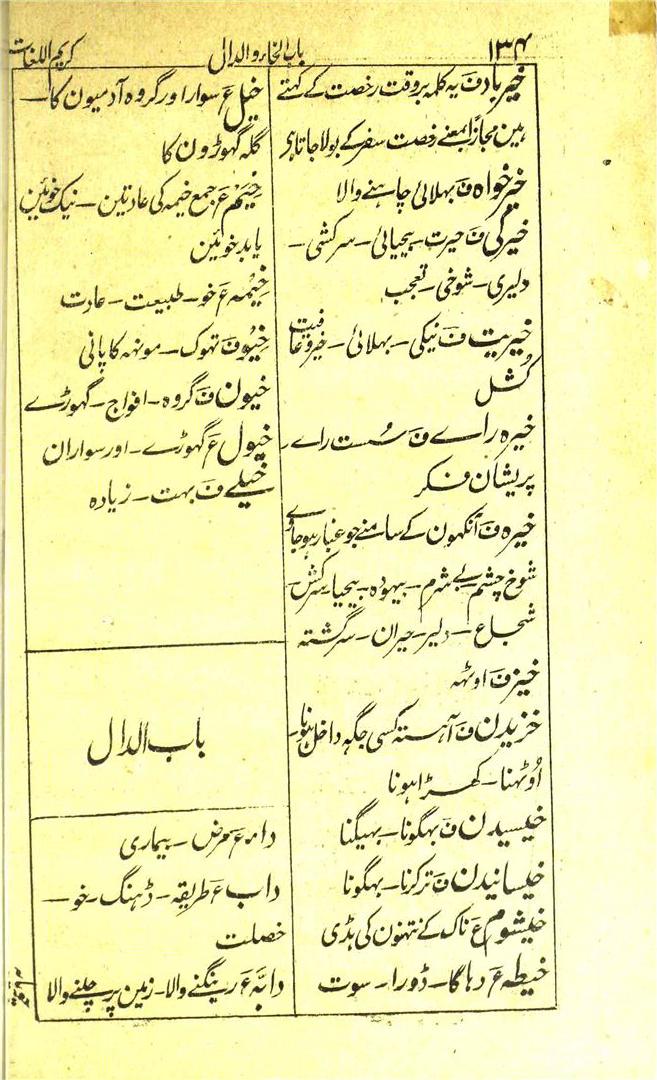 ۱۳۴
باب الخاء والدال
کریم اللغات
خیرباد ف یہ کلمہ بر وقت رخصت کے کہتے
ہین مجازاً بمعنے رخصت سفر کے بولا جاتا ہی
خیر خواہ ف بہلائی چاہنے والا
خیرگی ف حیرت ۔ بیحیائی ۔ سرکشی ۔
دلیری ۔ شوخی ۔ تعجب
خیریت ف نیکی ۔ بہلائی ۔ خیر و عافیت
کُشل
خیرہ راے ف سُست راے ۔
پریشان فکر
خیرہ ف آنکھون کے سامنے جو غبار ہو جاوے
شوخ چشم ۔ بے شرم ۔ بیہودہ ۔ بیحیا ۔ سرکش ۔
شجاع ۔ دلیر ۔ حیران ۔ سرگشتہ
خیز ف اوٹھہ
خزیدن ف آہستہ کسی جگہ داخل ہونا ۔
اُوٹہنا ۔ کھڑا ہونا
خیسیدن ف بہگونا ۔ بہیگنا
خیسانیدن ف تر کرنا ۔ بہگونا
خیشوم ع ناک کے نتہنون کی ہڈی
خیطہ ع دہاگا ۔ ڈورا ۔ سوت
خیل ع سوار اور گروہ آدمیون کا ۔
گلہ گہوڑون کا
خِیَم ع جمع خیمہ کی عادتین ۔ نیک خوئین
یا بد خوئین
خیمہ ع خو ۔ طبیعت ۔ عادت
خیو ف تہوک ۔ مونہہ کا پانی
خیون ف گروہ ۔ افواج ۔ گہوڑے
خیول ع گہوڑے ۔ اور سواران
خیلے ف بہت ۔ زیادہ
باب الدال
داء ع مرض ۔ بیماری
داب ع طریقہ ۔ ڈہنگ ۔ خو ۔
خصلت
دابّہ ع رینگنے والا ۔ زمین پر چلنے والا